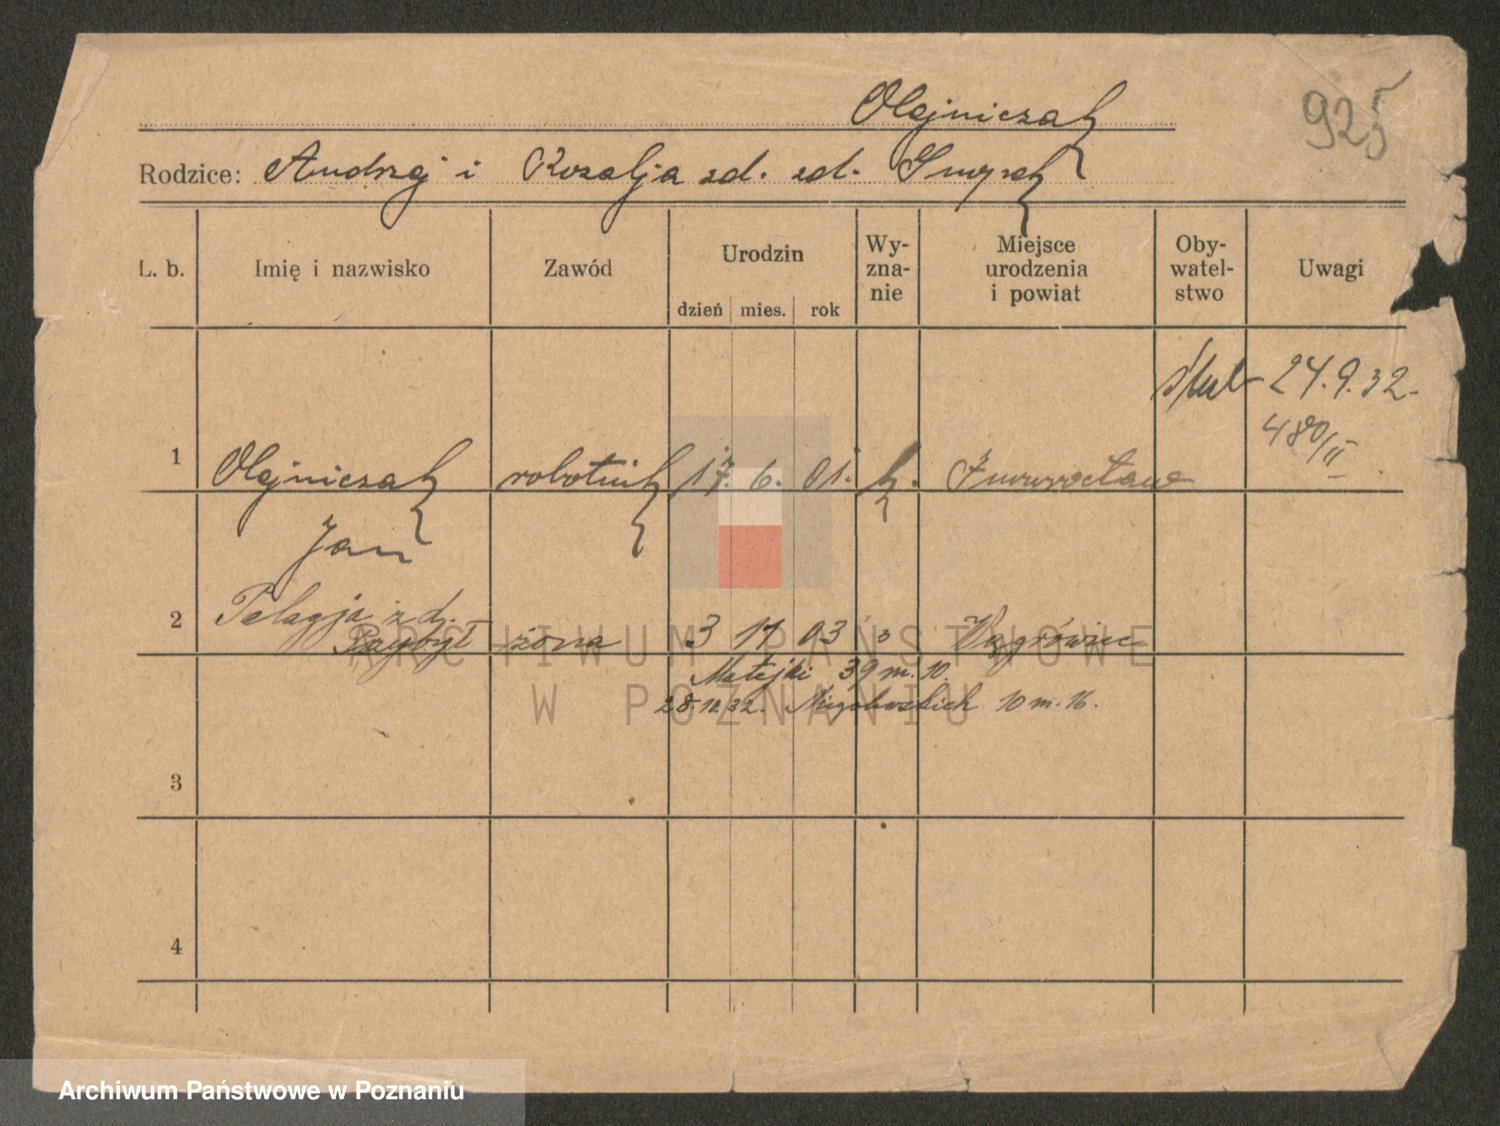 Olejniczak
925
Rodzice: Andrzej i Rozalja zd. zd. Smyrek
L. b. Imię i nazwisko Zawód Urodzin dzień mies. rok Wy-zna-nie Miejsce urodzenia i powiat Oby-watel-stwo Uwagi
ślub 24.9.32.
480/II
1 Olejniczak robotnik 17. 6. 01. k. Inowrocław
Jan
2 Pelagja z d.
Przybył żona 3 11 03 " Wągrówiec
Matejki 39 m. 10.
28.10.32. 10 m. 16.
3
4
ARCHIWUM PAŃSTWOWE
W POZNANIU
Archiwum Państwowe w Poznaniu